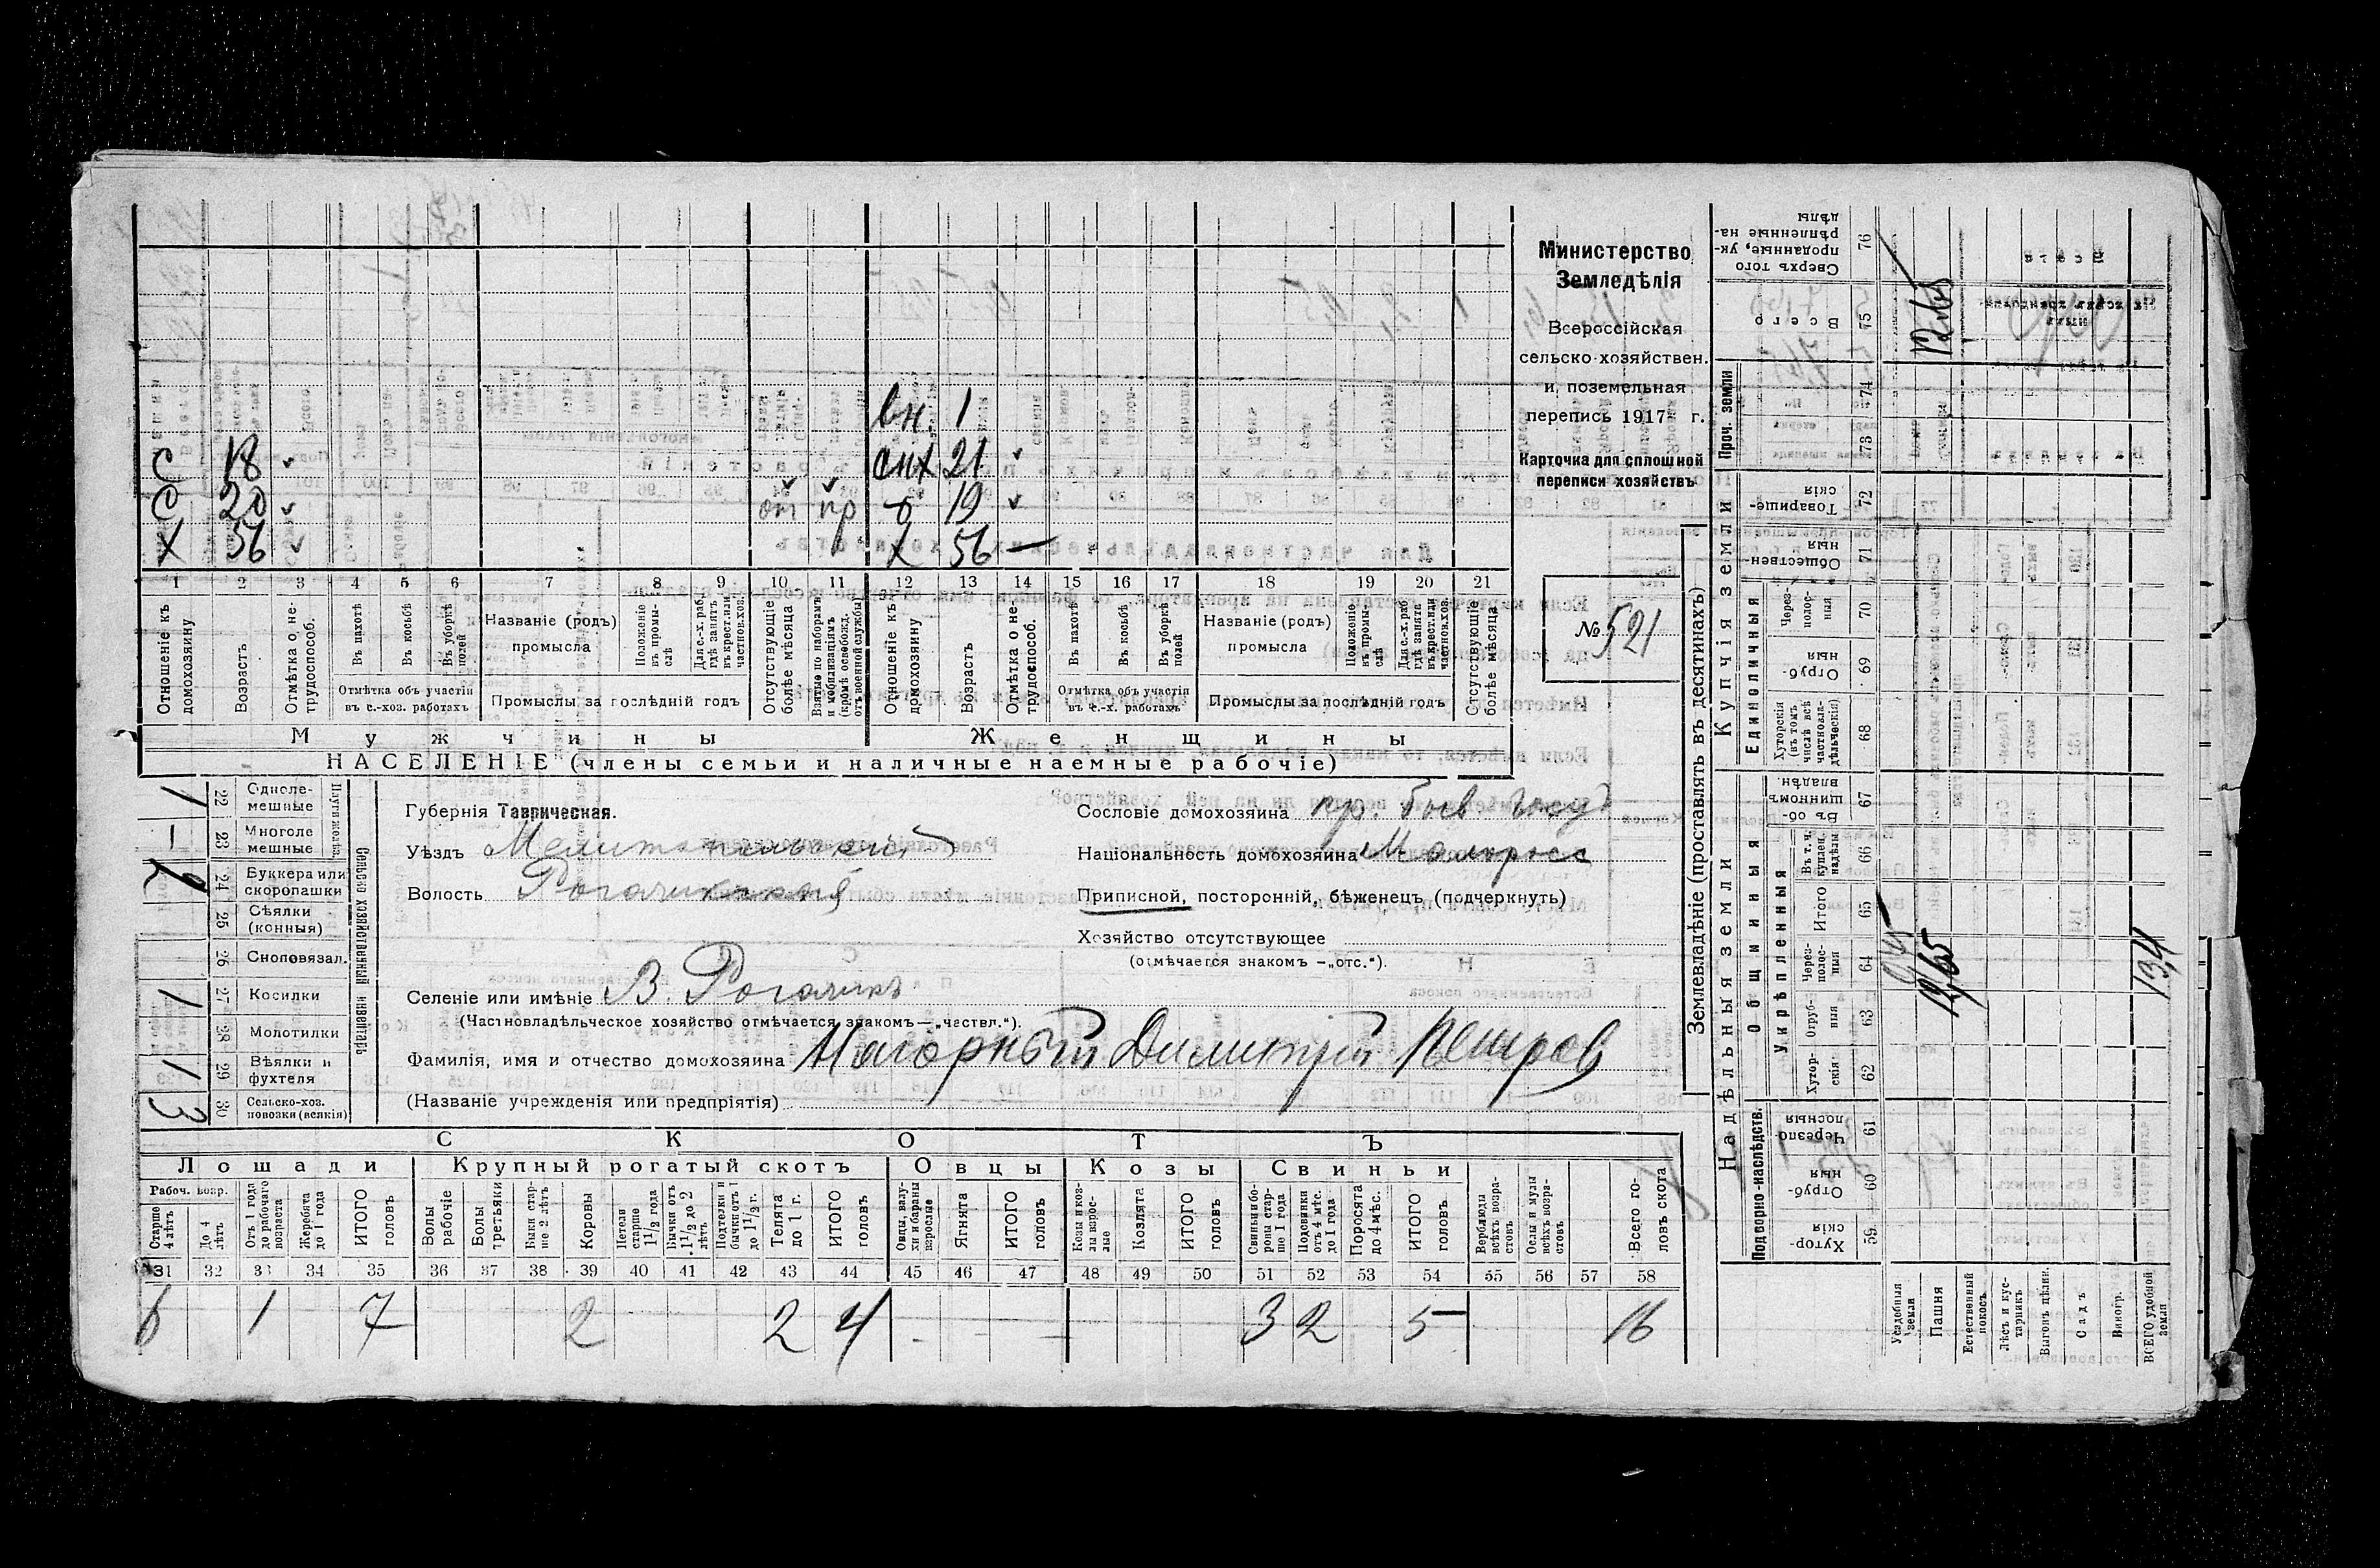 Министерство
Земледѣлія
Всероссійская
сельско-хозяйствен.
и поземельная
перепись 1917 г.
Карточка для сплошной
переписи хозяйствъ
№ 521
вн. 1
С 18 снх 21
С 20 от пр 19
Х 56 Х 56 —
1 2 3 4 5 6 7 8 9 10 11 12 13 14 15 16 17 18 19 20 21
Отношеніе къ домохозяину
Возрастъ
Отмѣтка о не-трудоспособ.
Въ пахотѣ
Въ косьбѣ
Въ уборкѣ полей
Отмѣтка объ участіи въ с.-хоз. работахъ
Названіе (родъ) промысла
Положеніе въ промы-слѣ
Для с.-х. раб. гдѣ занятъ въ крест. или частнов. хоз.
Промыслы за послѣдній годъ
Отсутствующіе болѣе мѣсяца
Взятые по наборамъ и мобилизаціямъ (кромѣ освобожд. отъ военной службы)
Отношеніе къ домохозяину
Возрастъ
Отмѣтка о не-трудоспособ.
Въ пахотѣ
Въ косьбѣ
Въ уборкѣ полей
Отмѣтка объ участіи въ с.-х. работахъ
Названіе (родъ) промысла
Положеніе въ промы-слѣ
Для с.-х. раб. гдѣ занята въ крест. или частнов. хоз.
Промыслы за послѣдній годъ
Отсутствующіе болѣе мѣсяца
Мужчины Женщины
НАСЕЛЕНІЕ (члены семьи и наличные наемные рабочіе)
Сельско хозяйственный инвентарь
Плуги желѣз.
22 Одноле-мешные 1
23 Многоле мешные 1
24 Буккера или скоропашки 2
25 Сѣялки (конныя)
26 Сноповязал.
27 Косилки 1
28 Молотилки
29 Вѣялки и фухтеля 1
30 Сельско-хоз. повозки (всякія) 3
Губернія Таврическая.
Уѣздъ Мелитопольскій
Волость Рогачикская
Сословіе домохозяина кр. быв. госуд
Національность домохозяина Малоросс
Приписной, посторонній, бѣженецъ (подчеркнуть)
Хозяйство отсутствующее
(отмѣчается знакомъ —„отс.“).
Селеніе или имѣніе В. Рогачикъ
(Частновладѣльческое хозяйство отмѣчается знакомъ—„частвл.“).
Фамилія, имя и отчество домохозяина Нагорный Димитрій Петров
(Названіе учрежденія или предпріятія)
СКОТЪ
Лошади Крупный рогатый скотъ Овцы Козы Свиньи
Рабоч. возр.
Старше 4 лѣтъ
До 4 лѣтъ
Отъ 1 года до рабочаго возраста
Жеребята до 1 года
ИТОГО головъ
Волы рабочіе
Волы третьяки
Быки стар-ше 2 лѣтъ
Коровы
Нетели старше 1 1/2 года
Бычки отъ 1 1/2 до 2 лѣтъ
Подтелки и бычки отъ 1 до 1 1/2 г.
Телята до 1 г.
ИТОГО головъ
Овцы, валу-хи и бараны взрослые
Ягнята
ИТОГО головъ
Козы и коз-лы взрос-лые
Козлята
ИТОГО головъ
Свиньи и бо-ровы стар-ше 1 года
Подсвинки отъ 4 мѣс. до 1 года
Поросята до 4 мѣс.
ИТОГО головъ
Верблюды всѣхъ возра-стовъ
Ослы и мулы всѣхъ возра-стовъ
Всего го-ловъ скота
31 32 33 34 35 36 37 38 39 40 41 42 43 44 45 46 47 48 49 50 51 52 53 54 55 56 57 58
6 1 7 2 2 4 - — — 3 2 5 16
Землевладѣніе (проставлять въ десятинахъ)
Надѣльныя земли Купчія земли
Подворно-наслѣдств.
Общинныя
Укрѣпленныя
Единоличныя
Проч. земли
Хутор-скія 59
Отруб-ныя 60
Черезпо-лосныя 61
Хутор-скія 62
Отруб-ныя 63
Через-полос-ныя 64
Итого 65
Въ т. ч. куплен. надѣлы 66
Въ об-щинномъ владѣн. 67
Хуторскія (въ томъ числѣ всѣ частновла-дѣльческія) 68
Отруб-ныя 69
Через-полос-ныя 70
Обществен-ныя 71
Товарище-скія 72
73
74
Всего 75
Сверхъ того проданные, ук-рѣпленные на-дѣлы 76
Усадебныя земли
Пашня 12,65 12,65
Естественный покосъ
Лѣсъ и кус-тарникъ
Выгонъ дѣлин.
Садъ
Виногр.
ВСЕГО удобной земли 13,4